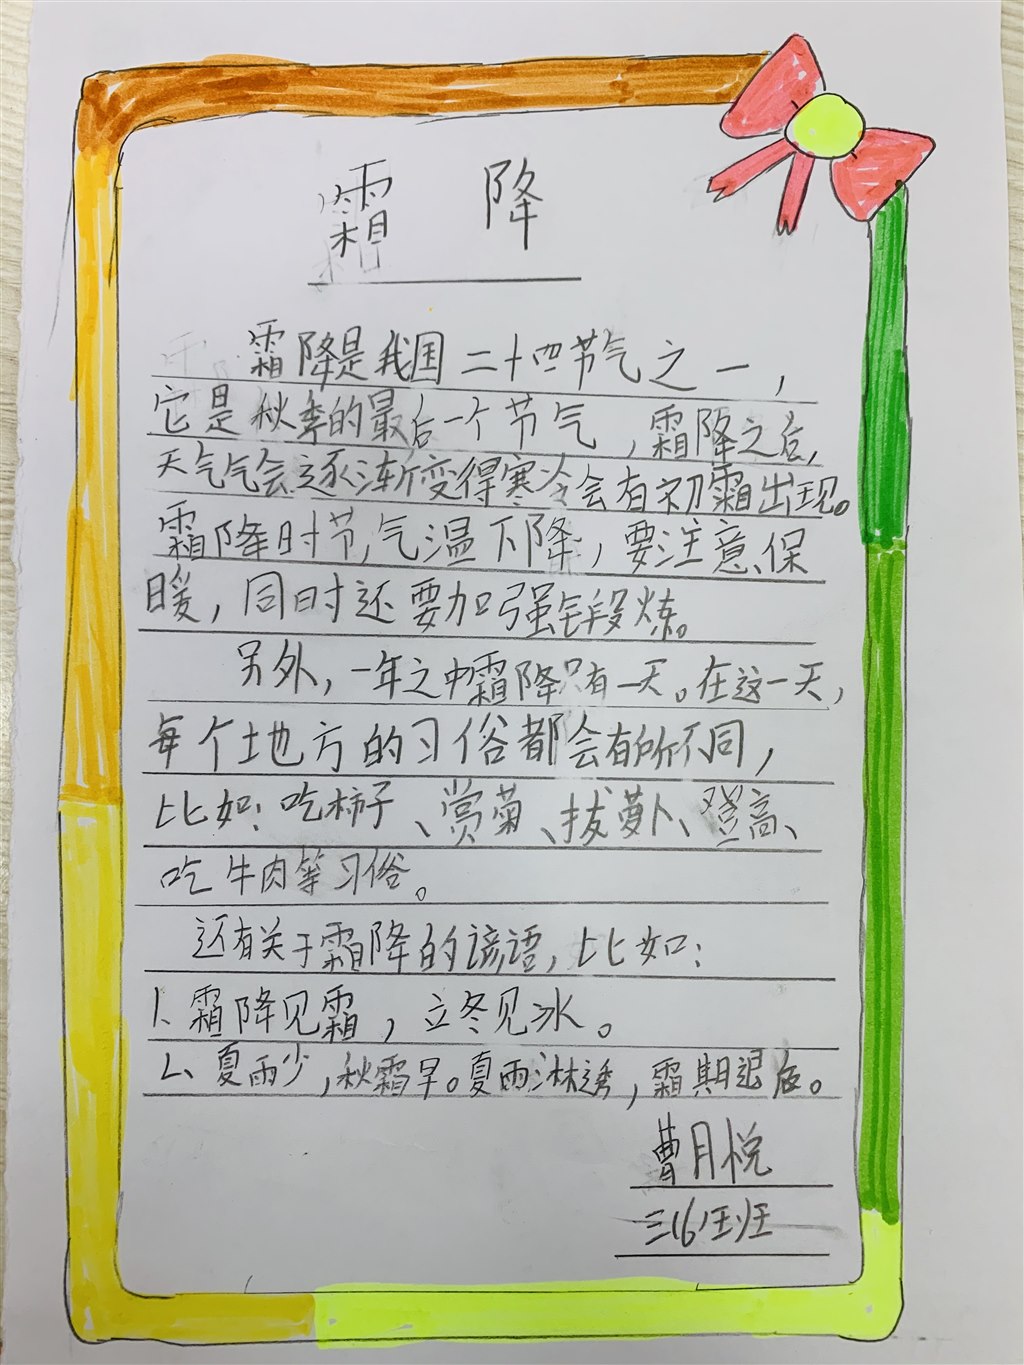 霜 降
霜降是我国二十四节气之一，
它是秋季的最后一个节气，霜降之后，
天气气会逐渐变得寒冷会有初霜出现。
霜降时节，气温下降，要注意保
暖，同时还要加强锻炼。
另外，一年之中霜降只有一天。在这一天，
每个地方的习俗都会有所不同，
比如：吃柿子、赏菊、拔萝卜、登高、
吃牛肉等习俗。
还有关于霜降的谚语，比如：
1、霜降见霜，立冬见冰。
2、夏雨少，秋霜早。夏雨淋透，霜期退后。
曹月悦
三（6）班